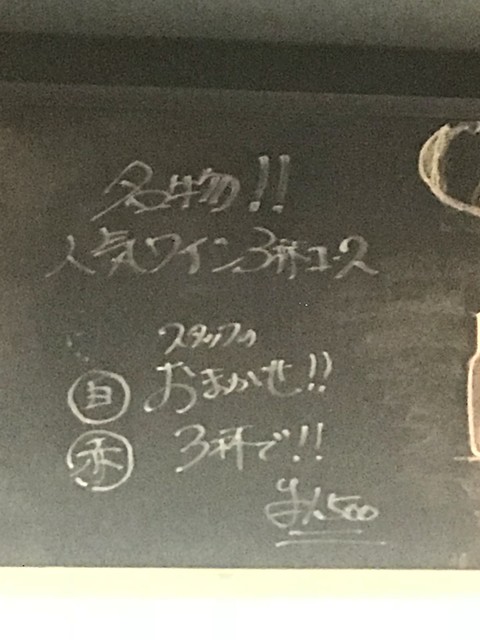 名物!!
人気ワイン3杯コース
スタッフの
白 おまかせ!!
赤 3杯で!!
¥1,500